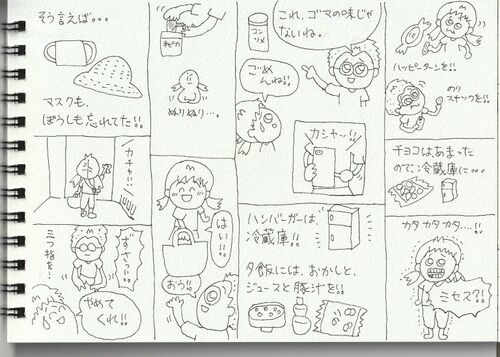 そう言えば・・・
マスクも、
ぼうしも忘れてた!!
ガチャ!!
三つ指を…
やめて
くれ!!
ぬりぬり…。
はい!!
おう!!
コン
ソメ
これ、ゴマの味じゃ
ないね。
ごめ
んね!!
カシャ〜!!
ハンバーガーは、
冷蔵庫!!
夕飯には、おかしと、
ジュースと豚汁を!!
ハッピーターンを!!
のり
スナックを!!
チョコは、あまった
ので、冷蔵庫に…
カタカタカタ…!!
ミセス?!